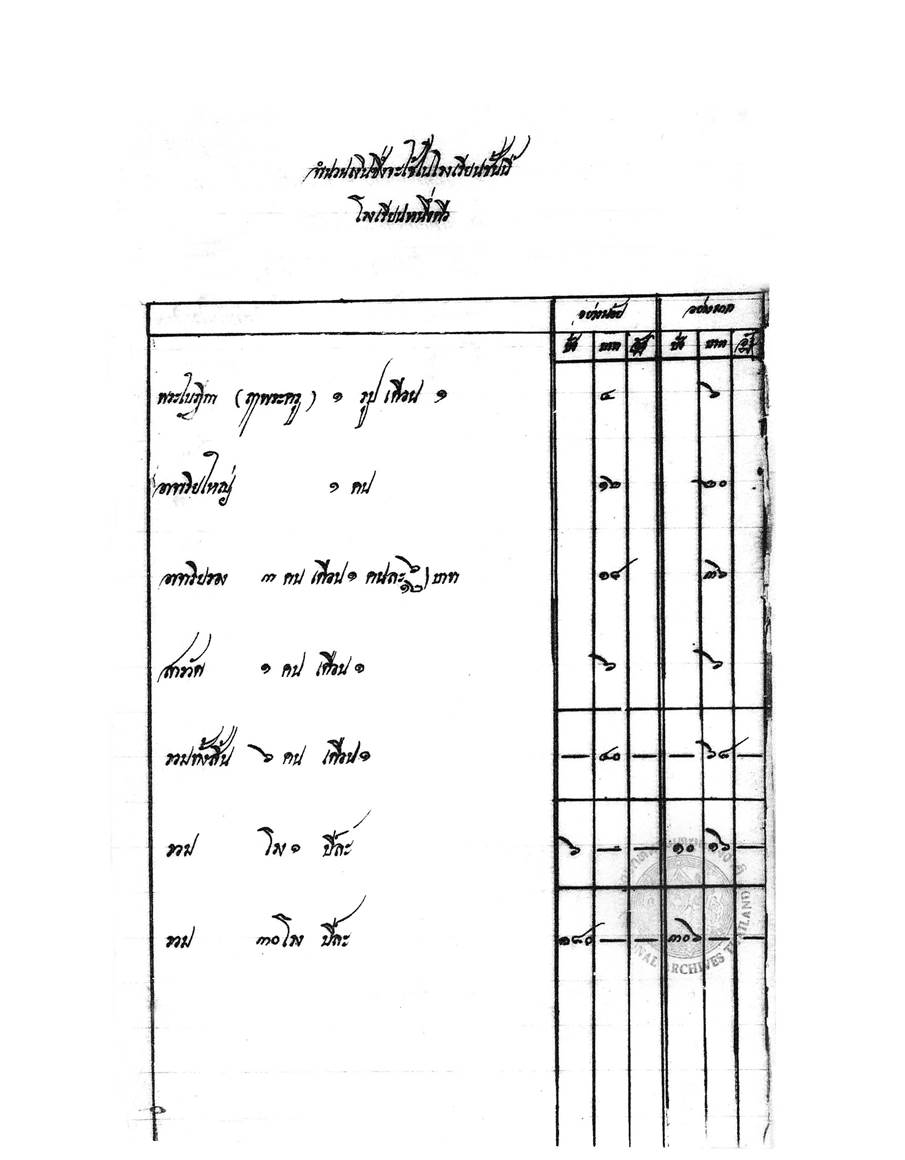 จำนวนเงินซึ่งจะใช้ในโรงเรียนชั้นนี้
โรงเรียนหนึ่งคือ
อย่างน้อย อย่างมาก
ชั่ง บาท อัฐ ชั่ง บาท อัฐ
พระใบฎีกา (ฤๅพระครู) ๑ รูป เดือน ๑ ๔ ๖
อาจารย์ใหญ่ ๑ คน ๑๒ ๒๐
อาจาริยรอง ๓ คน เดือน ๑ คนละ ๖ ๑๒ บาท ๑๘ ๓๖
สารวัด ๑ คน เดือน ๑ ๖ ๖
รวมทั้งสิ้น ๖ คน เดือน ๑ — ๔๐ — — ๖๘ —
รวม โรง ๑ ปีละ ๖ — — ๑๐ ๑๖ —
รวม ๓๐ โรง ปีละ ๑๘๐ — — ๓๐๖ — —
NATIONAL ARCHIVES THAILAND